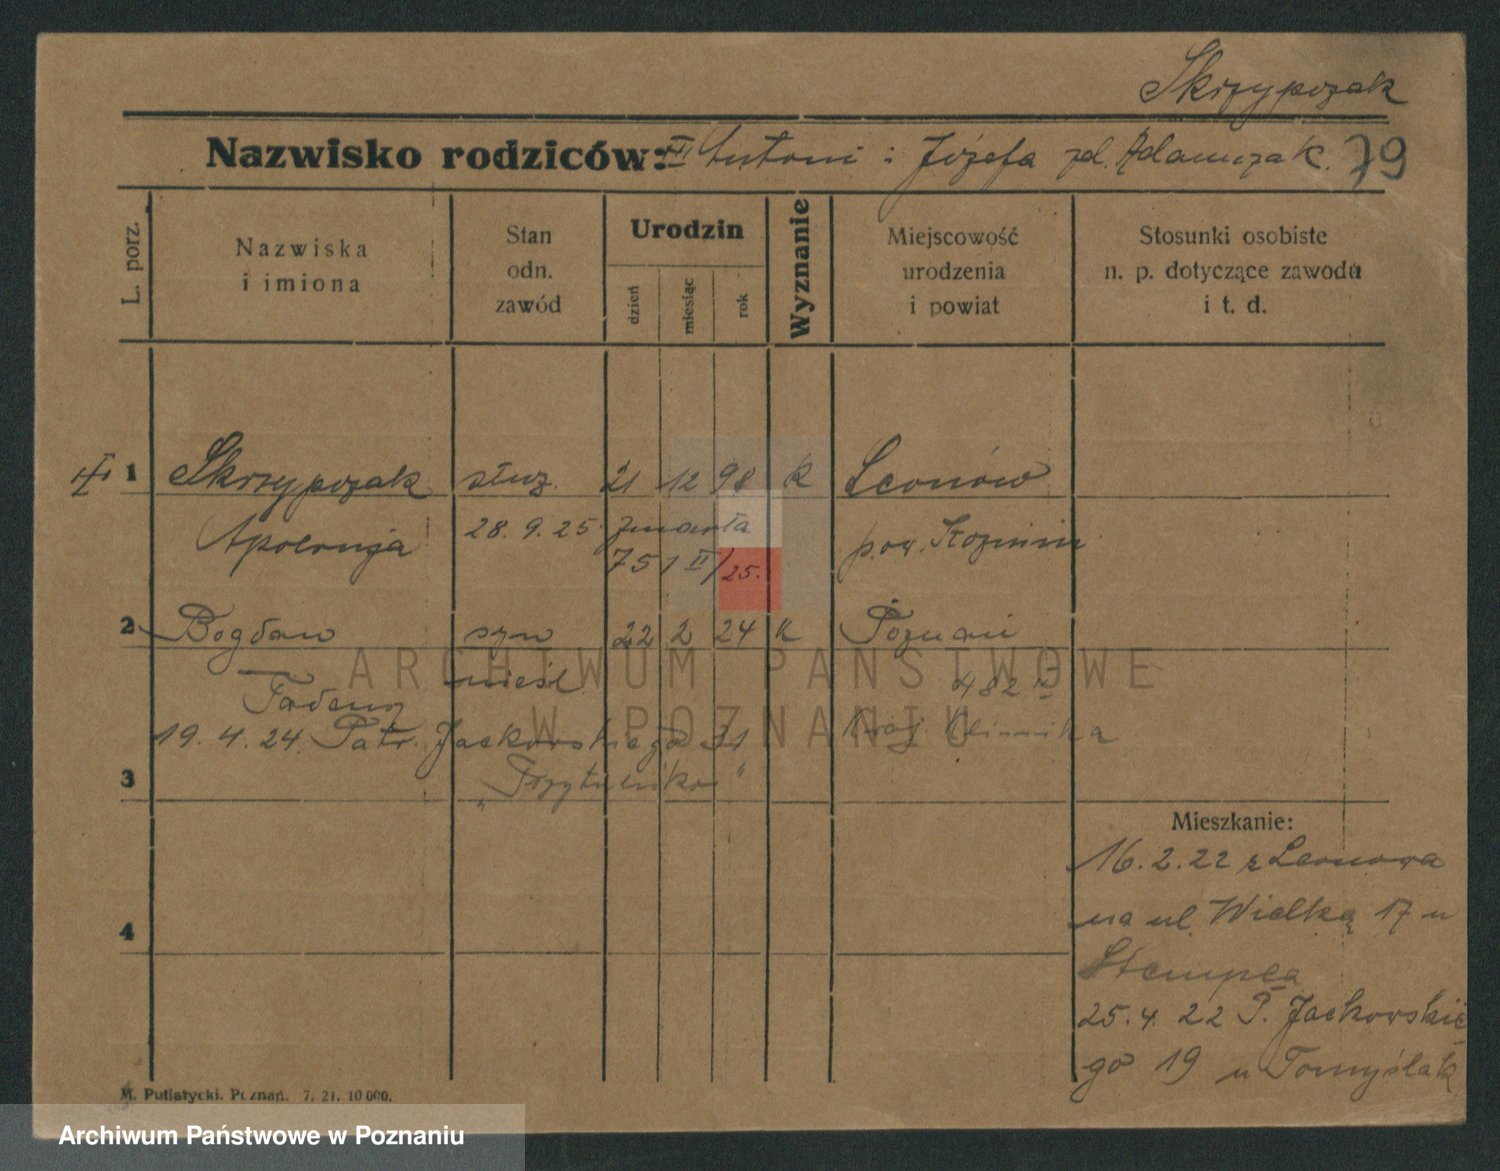 Skrzypczak
Nazwisko rodziców: Antoni i Józefa zd. Adamczak. 79
L. porz.
Nazwiska i imiona
Stan odn. zawód
Urodzin
dzień miesiąc rok
Wyznanie
Miejscowość urodzenia i powiat
Stosunki osobiste n. p. dotyczące zawodu i t. d.
1 Skrzypczak służ. 21 12 98 k Leonów
Apolonja 28. 9. 25. zmarła pow. Koźmin
751 II/25.
2 Bogdan syn 22 2 24 k Poznań
Tadeusz nieśl. 482
19. 4. 24. Patr. Jackowskiego 31 Klinika
3 „Przytulisko"
Mieszkanie:
16. 2. 22 z Leonowa
na ul. Wielką 17 u
Stempla
4
25. 4. 22 P. Jackowskie
go 19 u Tomyślak
M. Putiatycki. Poznań. 7. 21. 10 000.
ARCHIWUM PAŃSTWOWE
W POZNANIU
Archiwum Państwowe w Poznaniu